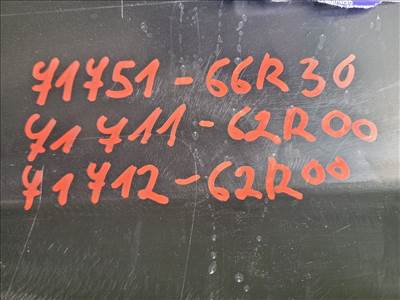 71751-66R30
71711-62R00
71712-62R00